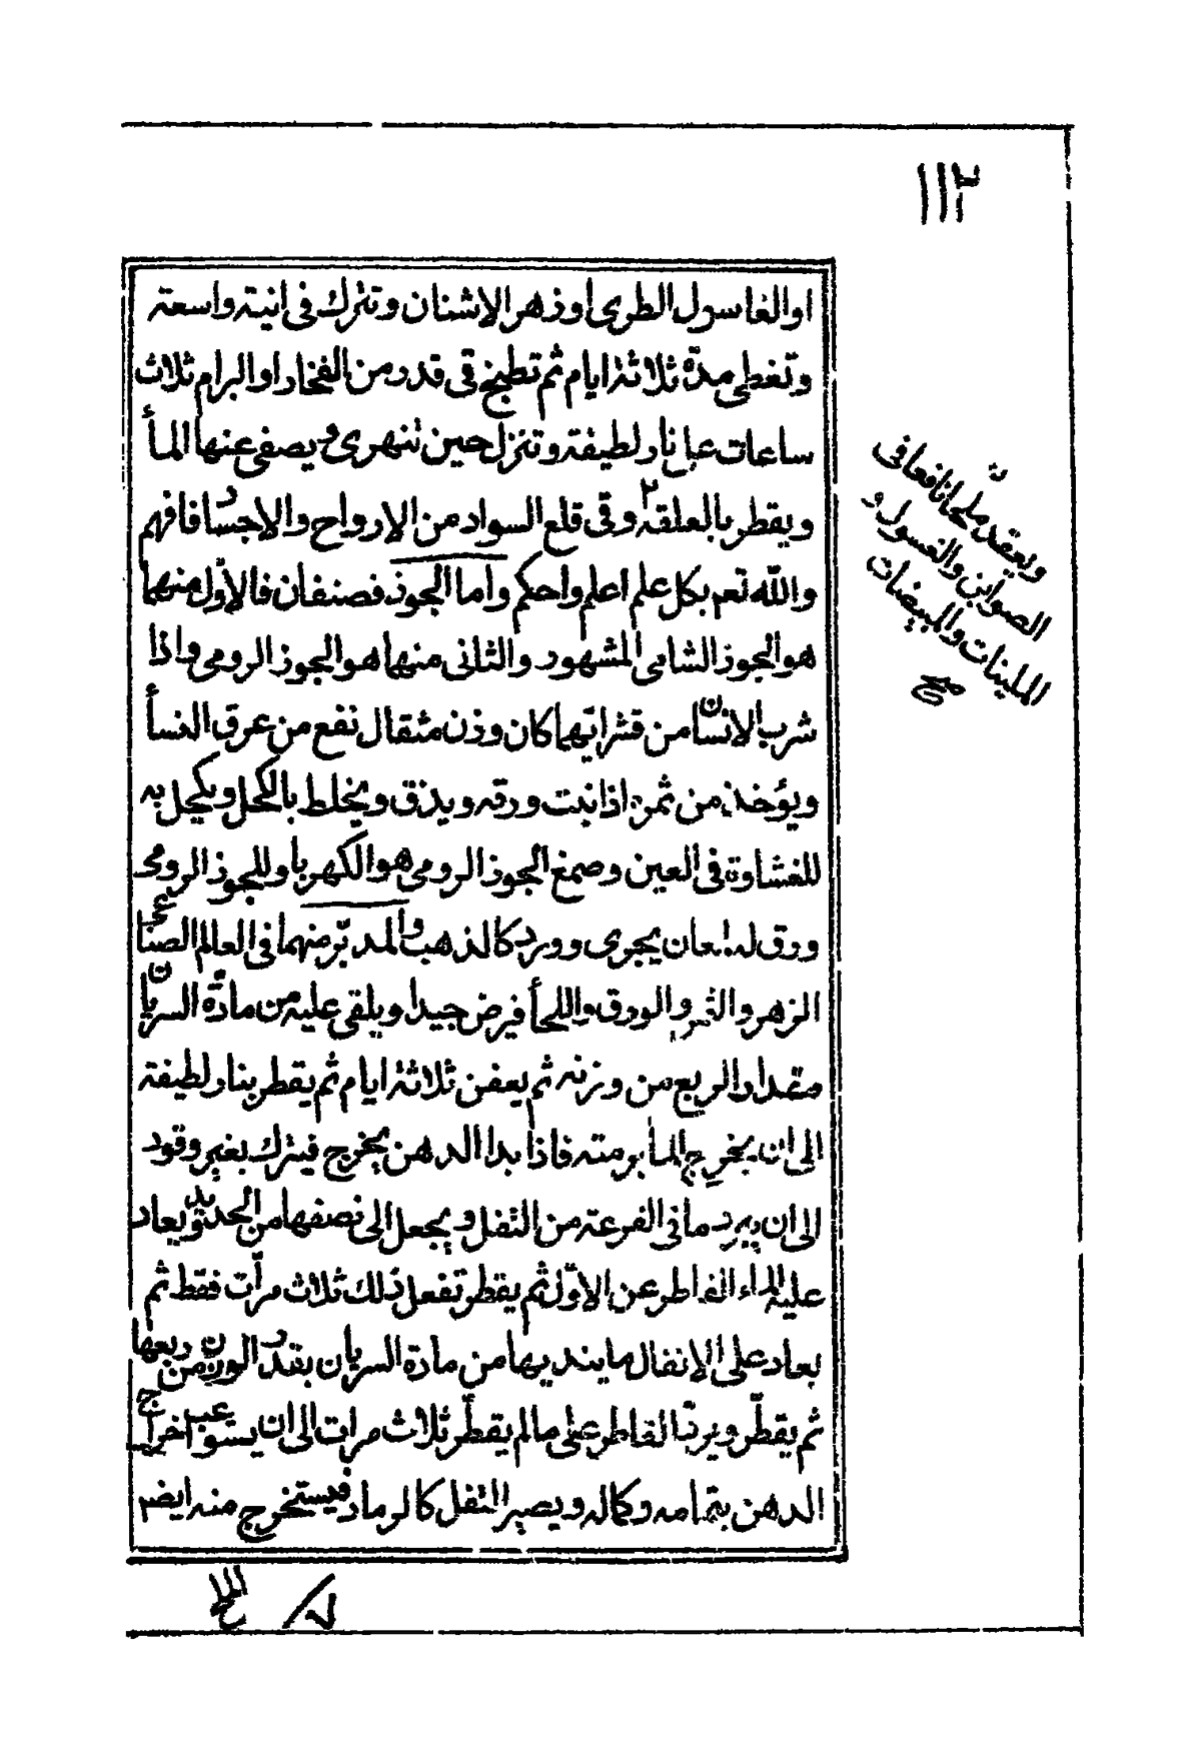 ١١٢
او الغاسول الطرى اوزهر الاشنان وتترك فى انية واسعة
وتغطى مدّة ثلاثة ايام ثم تطبخ فى قدر من الفخار او البرام ثلاث
ساعات على نار لطيفة وتنزل حين تنهرى ويصفى عنها المأ
ويقطر بالعلقة وفى قلع السواد من الارواح والاجساد فافهم
والله تعم بكل علم اعلم واحكم واما الجوز فصنفان فالاوّل منهما
هو الجوز الشامى المشهور والثانى منهما هو الجوز الرومى واذا
شرب الانسان من قشر ايهما كان وزن مثقال نفع من عرق النسأ
ويؤخذ من ثمره اذا نبت ورقه ويدق ويخلط بالكحل ويكحل به
للغشاوة فى العين وصمغ الجوز الرومى هو الكهربا وللجوز الرومى
ورق له لمعان يجرى وورد كالذهب والمدبّر منهما فى العالم الصناعى
الزهر والثمر والورق واللحأ فيرض جيدا ويلقى عليه من مادّة السريان
مقدار الربع من وزنه ثم يعفن ثلاثة ايام ثم يقطر بنار لطيفة
الى ان يخرج المأ برمته فاذا بدا الدهن يخرج فيترك بغير وقود
الى ان يبرد ما فى القرعة من الثفل ويجعل الى نصفها من الحديد ويعاد
عليه الماء القاطر عن الاوّل ثم يقطر تفعل ذلك ثلاث مرّات فقط ثم
يعاد على الاثفال ما ينديها من مادة السريان بقدر الوزن من ربعها
ثم يقطّر ويردّ القاطر على ما لم يقطّر ثلاث مرات الى ان يستوعب اخراج
الدهن بتمامه وكماله ويصير الثفل كالرماد فيستخرج منه ايضا
ويعقد ملحا نافعا فى
الصوابن والغسول و
الملينات والمبيضات
صح
الملح